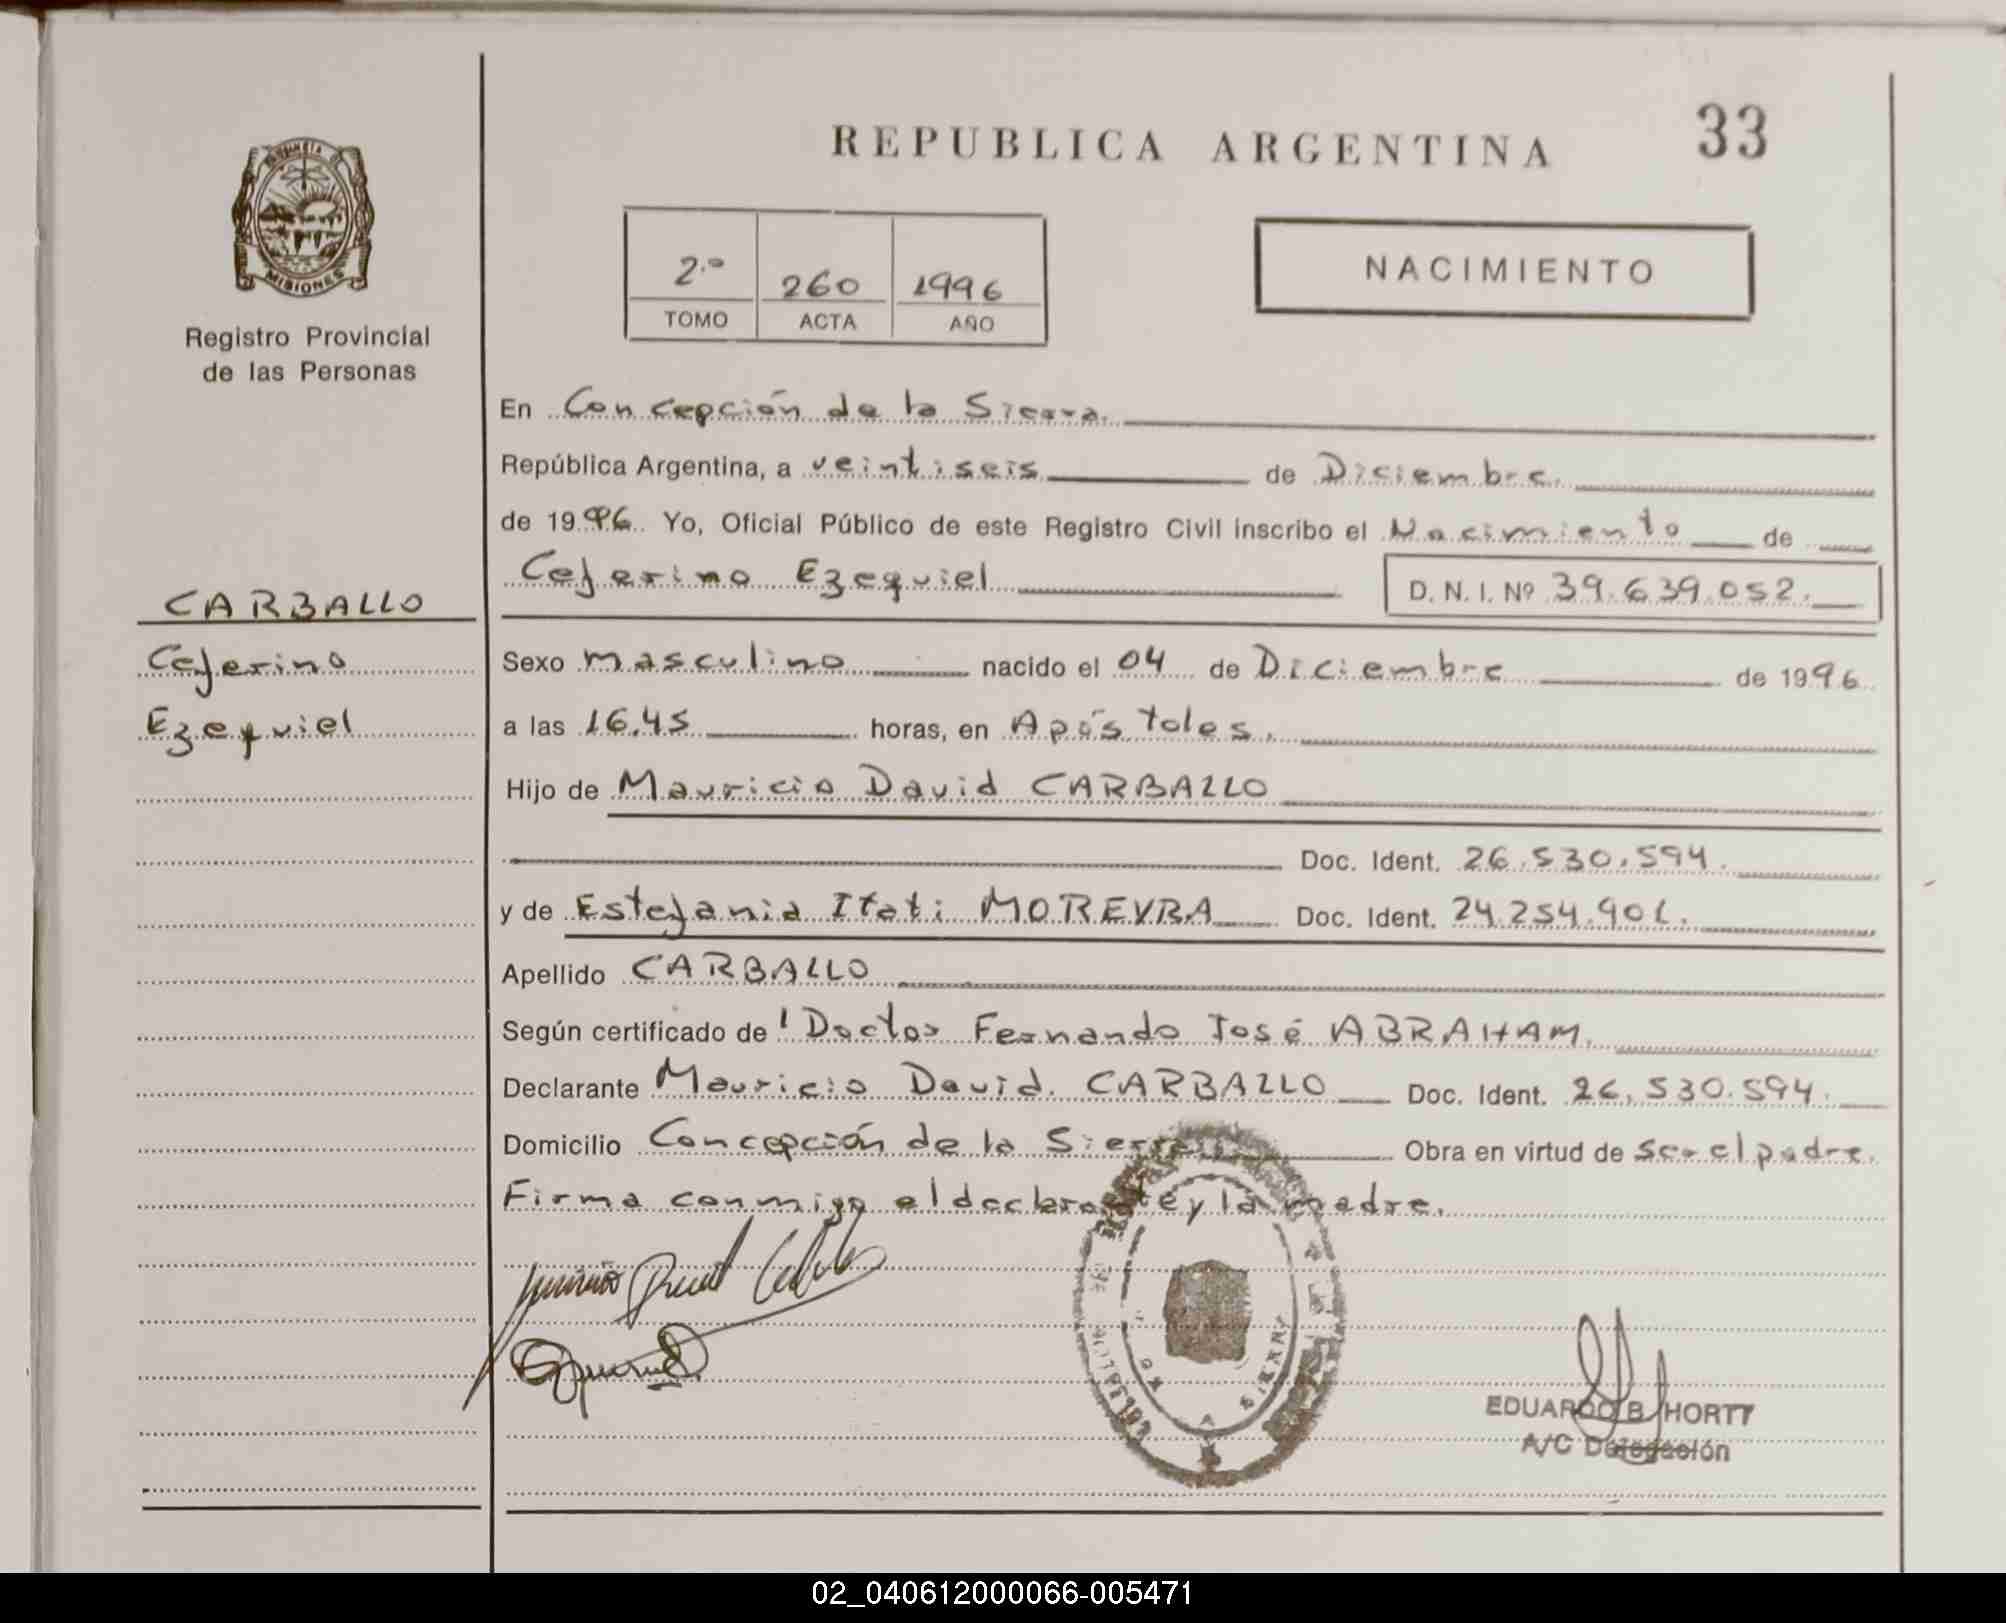 REPUBLICA ARGENTINA
33
PROVINCIA DE
MISIONES
Registro Provincial
de las Personas
2.º 260 1996
TOMO ACTA AÑO
NACIMIENTO
En Concepción de la Sierra.
República Argentina, a veintiseis de Diciembre.
de 1996. Yo, Oficial Público de este Registro Civil inscribo el Nacimiento de
Ceferino Ezequiel D. N. I. Nº 39.639.052.
CARBALLO
Ceferino
Ezequiel
Sexo masculino nacido el 04 de Diciembre de 1996
a las 16.45 horas, en Apóstoles.
Hijo de Mauricio David CARBALLO
Doc. Ident. 26.530.594.
y de Estefania Itati MOREYRA Doc. Ident. 24.254.901.
Apellido CARBALLO
Según certificado de l Doctor Fernando José ABRAHAM.
Declarante Mauricio David. CARBALLO Doc. Ident. 26.530.594.
Domicilio Concepción de la Sierra Obra en virtud de ser el padre.
Firma conmigo el declarante y la madre.
EDUARDO B. HORTT
A/C Delegación
02_040612000066-005471